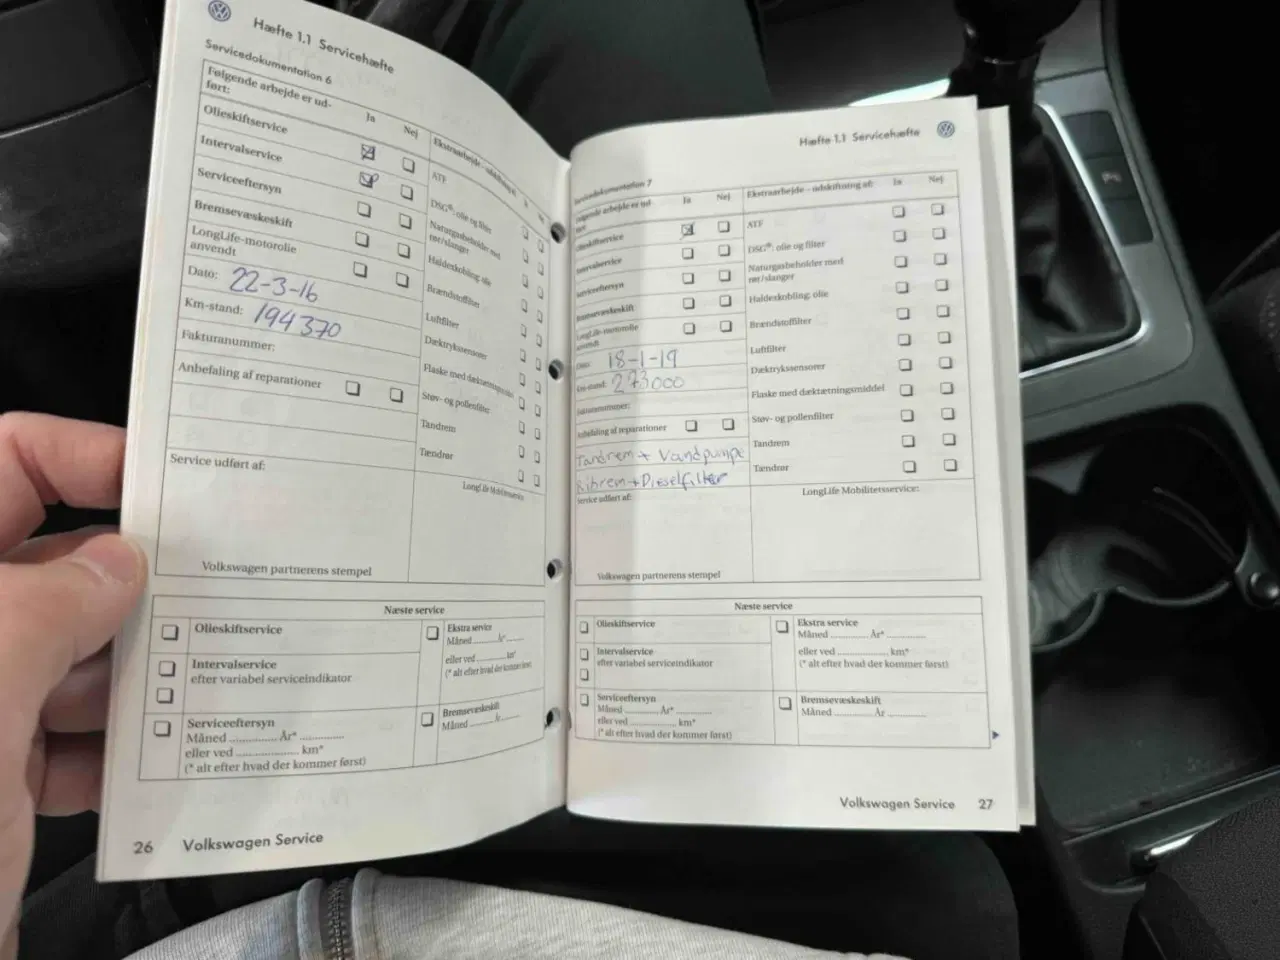 Hæfte 1.1 Servicehæfte
Servicedokumentation 6
Følgende arbejde er ud-
ført:
Ja
Nej
Olieskiftservice
Intervalservice
Serviceeftersyn
Bremsevæskeskift
LongLife-motorolie
anvendt
Dato: 22-3-16
Km-stand: 194370
Fakturanummer:
Anbefaling af reparationer
Service udført af:
Volkswagen partnerens stempel
Ekstraarbejde – udskiftning af:
Ja
Nej
ATF
DSG®: olie og filter
Naturgasbeholder med
rør/slanger
Haldexkobling: olie
Brændstoffilter
Luftfilter
Dæktrykssensorer
Flaske med dæktætningsmiddel
Støv- og pollenfilter
Tandrem
Tændrør
LongLife Mobilitetsservice:
Næste service
Olieskiftservice
Intervalservice
efter variabel serviceindikator
Serviceeftersyn
Måned ............... År* ..............
eller ved .................... km*
(* alt efter hvad der kommer først)
Ekstra service
Måned .......... År* ........
eller ved ............ km*
(* alt efter hvad der kommer først)
Bremsevæskeskift
Måned ........ År ........
26 Volkswagen Service
Hæfte 1.1 Servicehæfte
Servicedokumentation 7
Følgende arbejde er ud-
ført:
Ja
Nej
Olieskiftservice
Intervalservice
Serviceeftersyn
Bremsevæskeskift
LongLife-motorolie
anvendt
Dato: 18-1-19
Km-stand: 273000
Fakturanummer:
Anbefaling af reparationer
Tandrem + Vandpumpe
Ribrem + Dieselfilter
Service udført af:
Volkswagen partnerens stempel
Ekstraarbejde – udskiftning af:
Ja
Nej
ATF
DSG®: olie og filter
Naturgasbeholder med
rør/slanger
Haldexkobling: olie
Brændstoffilter
Luftfilter
Dæktrykssensorer
Flaske med dæktætningsmiddel
Støv- og pollenfilter
Tandrem
Tændrør
LongLife Mobilitetsservice:
Næste service
Olieskiftservice
Intervalservice
efter variabel serviceindikator
Serviceeftersyn
Måned ............ År* ............
eller ved ................ km*
(* alt efter hvad der kommer først)
Ekstra service
Måned ............ År* ............
eller ved ................ km*
(* alt efter hvad der kommer først)
Bremsevæskeskift
Måned ............ År ............
Volkswagen Service 27